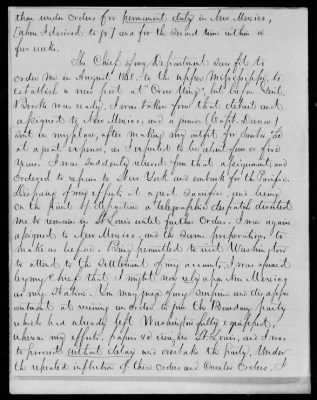 then under orders for permanent duty in New Mexico,
(when I desired to go) and for the second time within a
few weeks.
The Chief of my Department saw fit to
order me in August 1848, to the upper Mississippi, to
establish a new post at "Crow Wing", but before Genl.
Brooke was ready, I was taken from that detail and
assigned to New Mexico, and a junior (Capt. Dana)
sent in my place, after making my outfit for Santa Fé
at a great expense, as I expected to be absent four or five
years. I was suddenly relieved from that assignment, and
ordered to repair to New York and embark for the Pacific.
Disposing of my effects at a great sacrifice, and being
on the point of departure a telegraphic despatch directed
me to remain in St Louis until further orders. I was again
assigned to New Mexico, and the same preparations to
make as before. Being permitted to visit Washington
to attend to the settlement of my accounts, I was assured
by my Chief that I might now rely upon New Mexico
as my Station. You may judge of my surprise and disapp-
ointment at receiving an order to join the Boundary party
which had already left Washington fully equipped,
whereas my effects, papers &c were in St. Louis, and I was
to proceed without delay and overtake the party. Under
the repeated infliction of these orders and Counter Orders, I